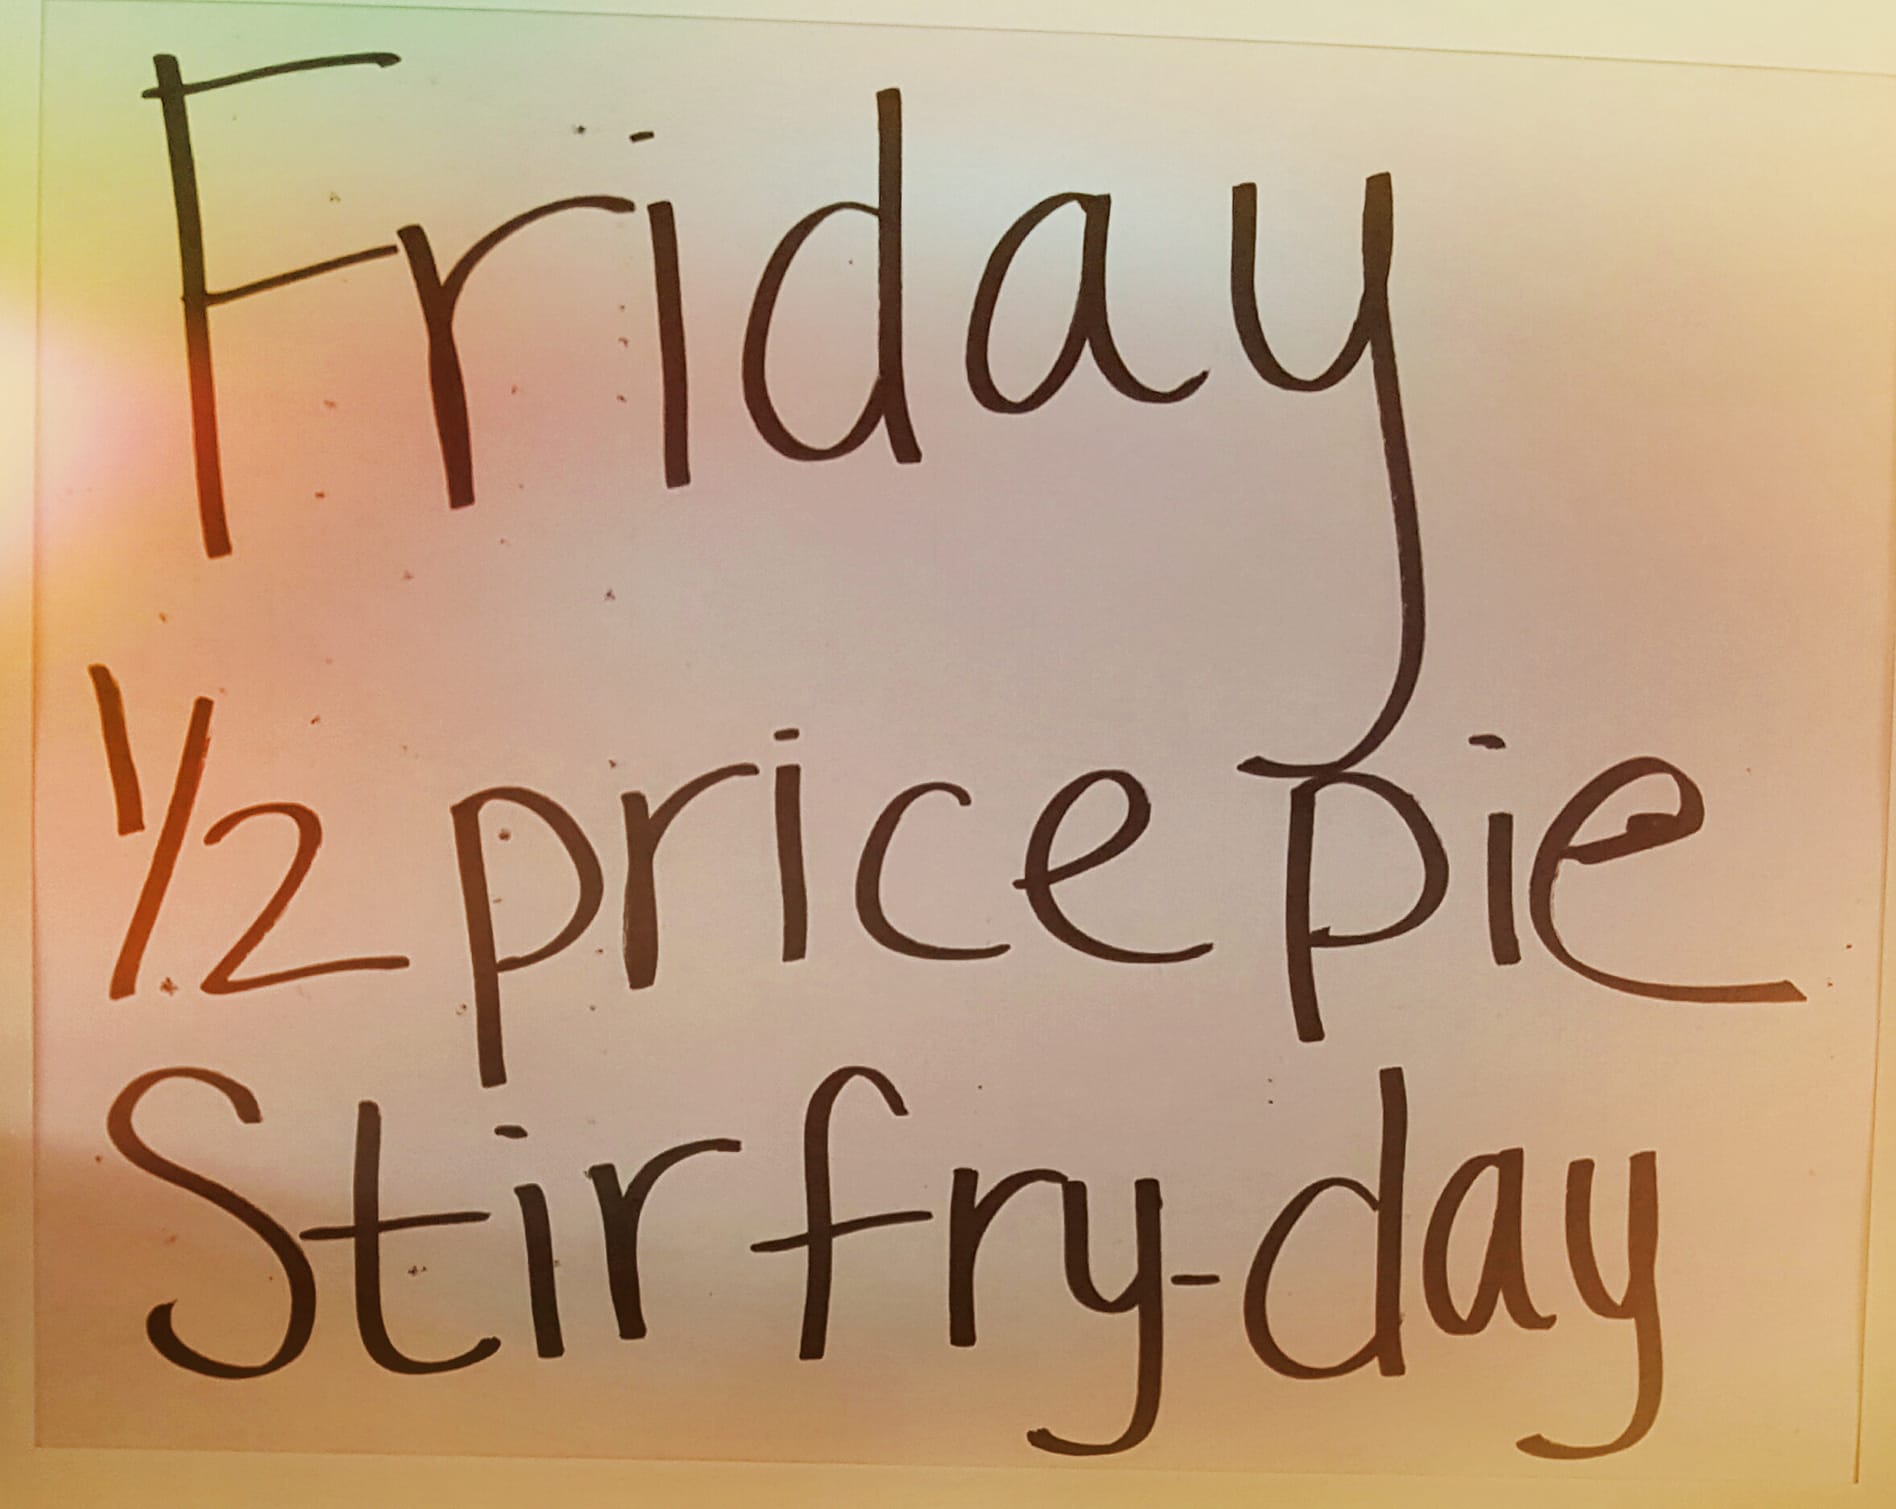 Friday
1/2 price pie
Stir fry-day